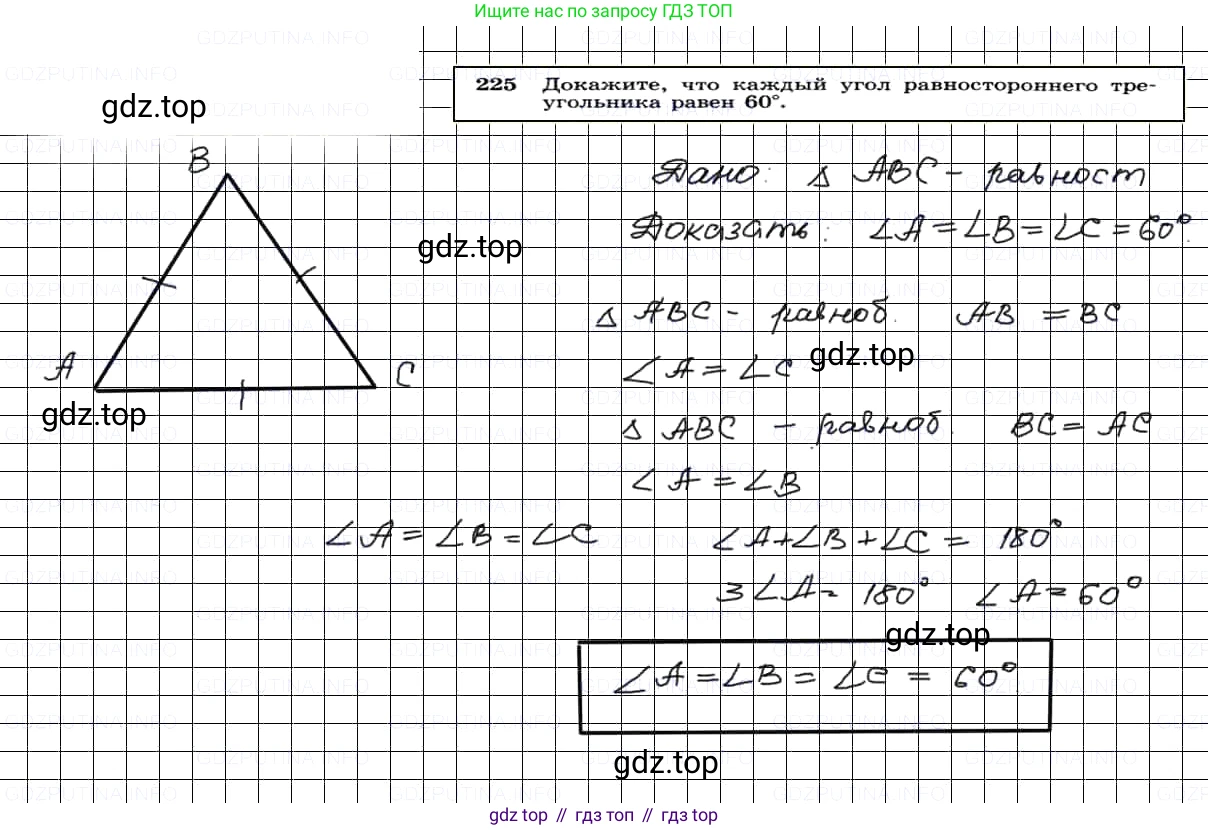 Ищите нас по запросу ГДЗ ТОП
225 Докажите, что каждый угол равностороннего тре-
угольника равен 60°.
gdz.top
B
Дано: Δ ABC - равност
Доказать: ∠A = ∠B = ∠C = 60°.
gdz.top
Δ ABC - равноб. AB = BC
gdz.top
A
C
∠A = ∠C
gdz.top
Δ ABC - равноб. BC = AC
∠A = ∠B
∠A = ∠B = ∠C
∠A+∠B+∠C = 180°
3∠A = 180° ∠A = 60°
gdz.top
∠A = ∠B = ∠C = 60°
gdz.top
gdz top // гдз топ // гдз top